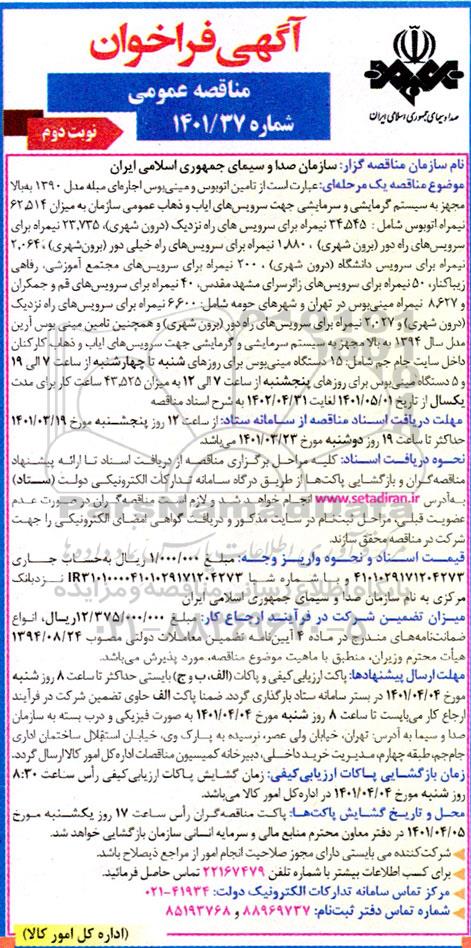 آگهی فراخوان
مناقصه عمومی
شماره ۱۴۰۱/۳۷
نوبت دوم
صدا و سیمای جمهوری اسلامی ایران
نام سازمان مناقصه گزار: سازمان صدا و سیمای جمهوری اسلامی ایران
موضوع مناقصه یک مرحله‌ای: عبارت است از تامین اتوبوس و مینی‌بوس اجاره‌ای مبله مدل ۱۳۹۰ به‌بالا
مجهز به سیستم گرمایشی و سرمایشی جهت سرویس‌های ایاب و ذهاب عمومی سازمان به میزان ۶۲,۵۱۴
نیمراه اتوبوس شامل : ۳۴,۵۴۵ نیمراه برای سرویس های راه نزدیک (درون شهری)، ۲۳,۷۳۵ نیمراه برای
سرویس‌های راه دور (برون شهری) ، ۱,۸۸۰ نیمراه برای سرویس‌های راه خیلی دور (برون‌شهری)، ۲,۰۶۴
نیمراه برای سرویس دانشگاه (درون شهری) ، ۲۰۰ نیمراه برای سرویس‌های مجتمع آموزشی، رفاهی
زیباکنار، ۵۰ نیمراه برای سرویس‌های زائرسرای مشهد مقدس، ۴۰ نیمراه برای سرویس‌های قم و جمکران
و ۸,۶۲۷ نیمراه مینی‌بوس در تهران و شهرهای حومه شامل: ۶,۶۰۰ نیمراه برای سرویس‌های راه نزدیک
(درون شهری) و ۲,۰۲۷ نیمراه برای سرویس‌های راه دور (برون شهری) و همچنین تامین مینی بوس آرین
مدل سال ۱۳۹۴ به بالا مجهز به سیستم سرمایشی و گرمایشی جهت سرویس‌های ایاب و ذهاب کارکنان
داخل سایت جام جم شامل: ۱۵ دستگاه مینی‌بوس برای روزهای شنبه تا چهارشنبه از ساعت ۷ الی ۱۹
و ۵ دستگاه مینی‌بوس برای روزهای پنجشنبه از ساعت ۷ الی ۱۲ به میزان ۴۳,۵۲۵ ساعت کار برای مدت
یکسال از تاریخ ۱۴۰۱/۰۵/۰۱ لغایت ۱۴۰۲/۰۴/۳۱ به شرح اسناد مناقصه
مهلت دریافت اسناد مناقصه از سامانه ستاد: از ساعت ۱۲ روز پنجشنبه مورخ ۱۴۰۱/۰۳/۱۹
حداکثر تا ساعت ۱۹ روز دوشنبه مورخ ۱۴۰۱/۰۳/۲۳ می‌باشد.
نحوه دریافت اسناد: کلیه مراحل برگزاری مناقصه از دریافت اسناد تا ارائه پیشنهاد
مناقصه‌گران و بازگشایی پاکت‌ها از طریق درگاه سامانه تدارکات الکترونیکی دولت (ستاد)
به آدرس www.setadiran.ir انجام خواهد شد و لازم است مناقصه‌گران در صورت عدم
عضویت قبلی، مراحل ثبت‌نام در سایت مذکور و دریافت گواهی امضای الکترونیکی را جهت
شرکت در مناقصه محقق سازند.
قیمت اسناد و نحوه واریز وجه: مبلغ ۱/۰۰۰/۰۰۰ ریال به‌حساب جاری
۴۱۰۱۰۲۹۱۷۱۲۰۴۲۷۳ و یا شماره شبا IR۳۱۰۱۰۰۰۰۴۱۰۱۰۲۹۱۷۱۲۰۴۲۷۳ نزدبانک
مرکزی به نام سازمان صدا و سیمای جمهوری اسلامی ایران
میزان تضمین شرکت در فرآیند ارجاع کار: مبلغ ۱۲/۳۷۵/۰۰۰/۰۰۰ریال، انواع
ضمانت‌نامه‌های مندرج در ماده ۴ آیین‌نامه تضمین معاملات دولتی مصوب ۱۳۹۴/۰۸/۲۴
هیأت محترم وزیران، منطبق با ماهیت موضوع مناقصه، مورد پذیرش می‌باشد.
مهلت ارسال پیشنهادها: پاکت ارزیابی کیفی و پاکات (الف، ب و ج) بایستی حداکثر تا ساعت ۸ روز شنبه
مورخ ۱۴۰۱/۰۴/۰۴ در بستر سامانه ستاد بارگذاری گردد. ضمنا پاکت الف حاوی تضمین شرکت در فرآیند
ارجاع کار می‌بایست تا ساعت ۸ روز شنبه مورخ ۱۴۰۱/۰۴/۰۴ به صورت فیزیکی و درب بسته به سازمان
صدا و سیما به آدرس: تهران، خیابان ولی عصر، نرسیده به پارک وی، خیابان استقلال ساختمان اداری
جام‌جم، طبقه چهارم، مدیریت خرید داخلی، دبیرخانه کمیسیون مناقصات اداره کل امور کالا ارسال گردد.
زمان بازگشایی پاکات ارزیابی‌کیفی: زمان گشایش پاکات ارزیابی‌کیفی رأس ساعت ۸:۳۰
روز شنبه مورخ ۱۴۰۱/۰۴/۰۴ در اداره کل امور کالا می‌باشد.
محل و تاریخ گشایش پاکت‌ها: پاکت مناقصه‌گران رأس ساعت ۱۷ روز یکشنبه مورخ
۱۴۰۱/۰۴/۰۵ در دفتر معاون محترم منابع مالی و سرمایه انسانی سازمان بازگشایی خواهد شد.
شرکت‌کننده می بایستی دارای مجوز صلاحیت انجام امور از مراجع ذیصلاح باشد.
برای کسب اطلاعات بیشتر با شماره تلفن ۲۲۱۶۷۴۷۹ تماس حاصل فرمائید.
مرکز تماس سامانه تدارکات الکترونیک دولت: ۴۱۹۳۴-۰۲۱
شماره تماس دفتر ثبت‌نام: ۸۸۹۶۹۷۳۷ و ۸۵۱۹۳۷۶۸
(اداره کل امور کالا)